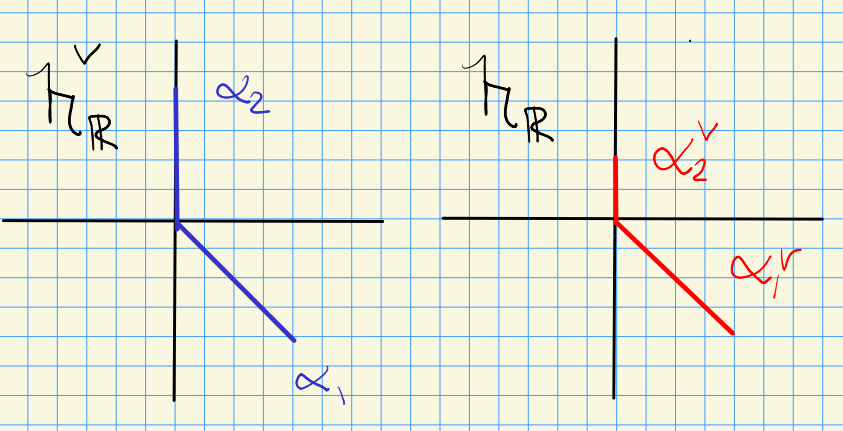 𝔥^∨_ℝ
α₂
α₁
𝔥_ℝ
α₂^∨
α₁^∨